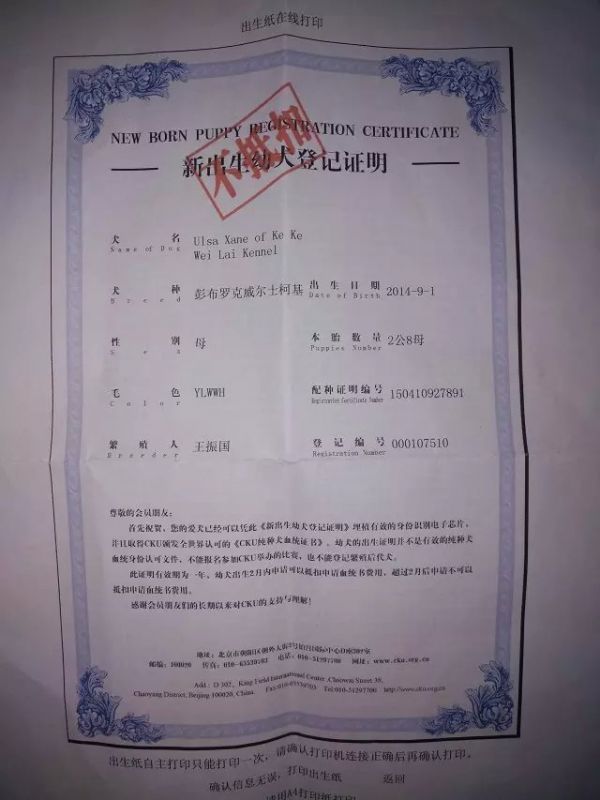 出生纸在线打印
NEW BORN PUPPY REGISTRATION CERTIFICATE
新出生幼犬登记证明
不抵扣
犬名 Ulsa Xane of Ke Ke
Name of Dog Wei Lai Kennel
犬种 彭布罗克威尔士柯基 出生日期 2014-9-1
Breed Date of Birth
性别 母 本胎数量 2公8母
Sex Puppies Number
毛色 YLWWH 配种证明编号 150410927891
Color Registration Certificate Number
繁殖人 王振国 登记编号 000107510
Breeder Registration Number
尊敬的会员朋友:
首先祝贺,您的爱犬已经可以凭此《新出生幼犬登记证明》埋植有效的身份识别电子芯片,
并且取得CKU颁发全世界认可的《CKU纯种犬血统证书》。幼犬的出生证明并不是有效的纯种犬
血统身份认可文件,不能报名参加CKU举办的比赛,也不能登记繁殖后代犬。
此证明有效期为一年,幼犬出生2月内申请可以抵扣申请血统书费用,超过2月后申请不可以
抵扣申请血统书费用。
感谢会员朋友们的长期以来对CKU的支持与理解!
地址:北京市朝阳区朝外大街
邮编:100020 传真:010-65539703 电话:010-51297700 网址:www.cku.org.cn
Add: D 302, King Field International Center, Chaowai Street 39,
Chaoyang District, Beijing 100020, China. Fax:010-65539703 Tel:010-51297700 http://www.cku.org.cn
出生纸自主打印只能打印一次,请确认打印机连接正确后再确认打印。
确认信息无误,打印出生纸 返回
请用A4打印纸打印